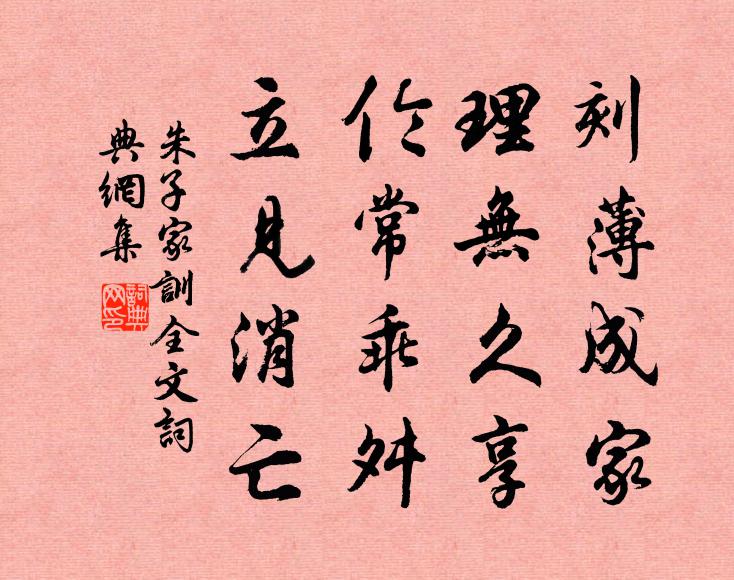 刻薄成家
理無久享
伦常乖舛
立見消亡
朱子家訓全文詞
典網集
詞典
网印